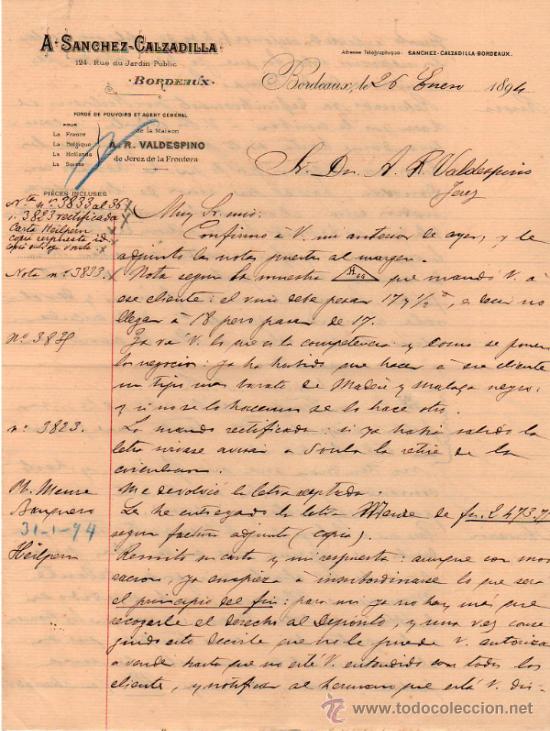 A. SANCHEZ-CALZADILLA
124, Rue du Jardin Public
BORDEAUX
Adresse Télégraphique: SANCHEZ-CALZADILLA-BORDEAUX.
Bordeaux, le 26 Enero 1894
FONDÉ DE POUVOIRS ET AGENT GÉNÉRAL
POUR
La France
La Belgique
La Hollande
La Suisse
de la Maison
A. R. VALDESPINO
de Jerez de la Frontera
Sr. Dn. A. R. Valdespino
Jerez
PIÈCES INCLUSES
Nta nº 3833 al 35
n. 3823 rectificada
Carta Heilpern
copia respuesta id
Muy Sr. mio:
Confirmo á V. mi anterior de ayer, y le
adjunto las notas puestas al margen.
Nota nº 3833.
Nota segun la muestra que mandó V. á
ese cliente: el vino debe pesar 17 y ½ º, á
llegar á 18 pero pasar de 17.
Nº 3835
Ya vé V. lo que es la competencia y como se ponen
los negocios: ya ha habido que hacer á ese cliente
un tipo mas barato de Madera y malaga negro:
y si no se lo hacemos se lo hace otro.
nº 3823.
Lo mando rectificado: si ya habia salido la
letra avisar á Soula la retire de la
circulacion.
Ph. Meure
Me devolvió la letra aceptada.
Banquero
31-1-94
Le he entregado la letra Meure de fr. 2473,75
segun factura adjunta (copia).
Heilpern
Remito su carta y mi respuesta: aunque con
ya empieza á insubordinarse lo que será
el principio del fin: para mi ya no hay mas que
recogerle el derecho al Depósito, y una vez conse-
guido esto decirle que no le puede V. autorizar
á vender hasta que no esté V. entendido con todos los
cliente, y notificar al hermano que está V. dis-
www.todocoleccion.net